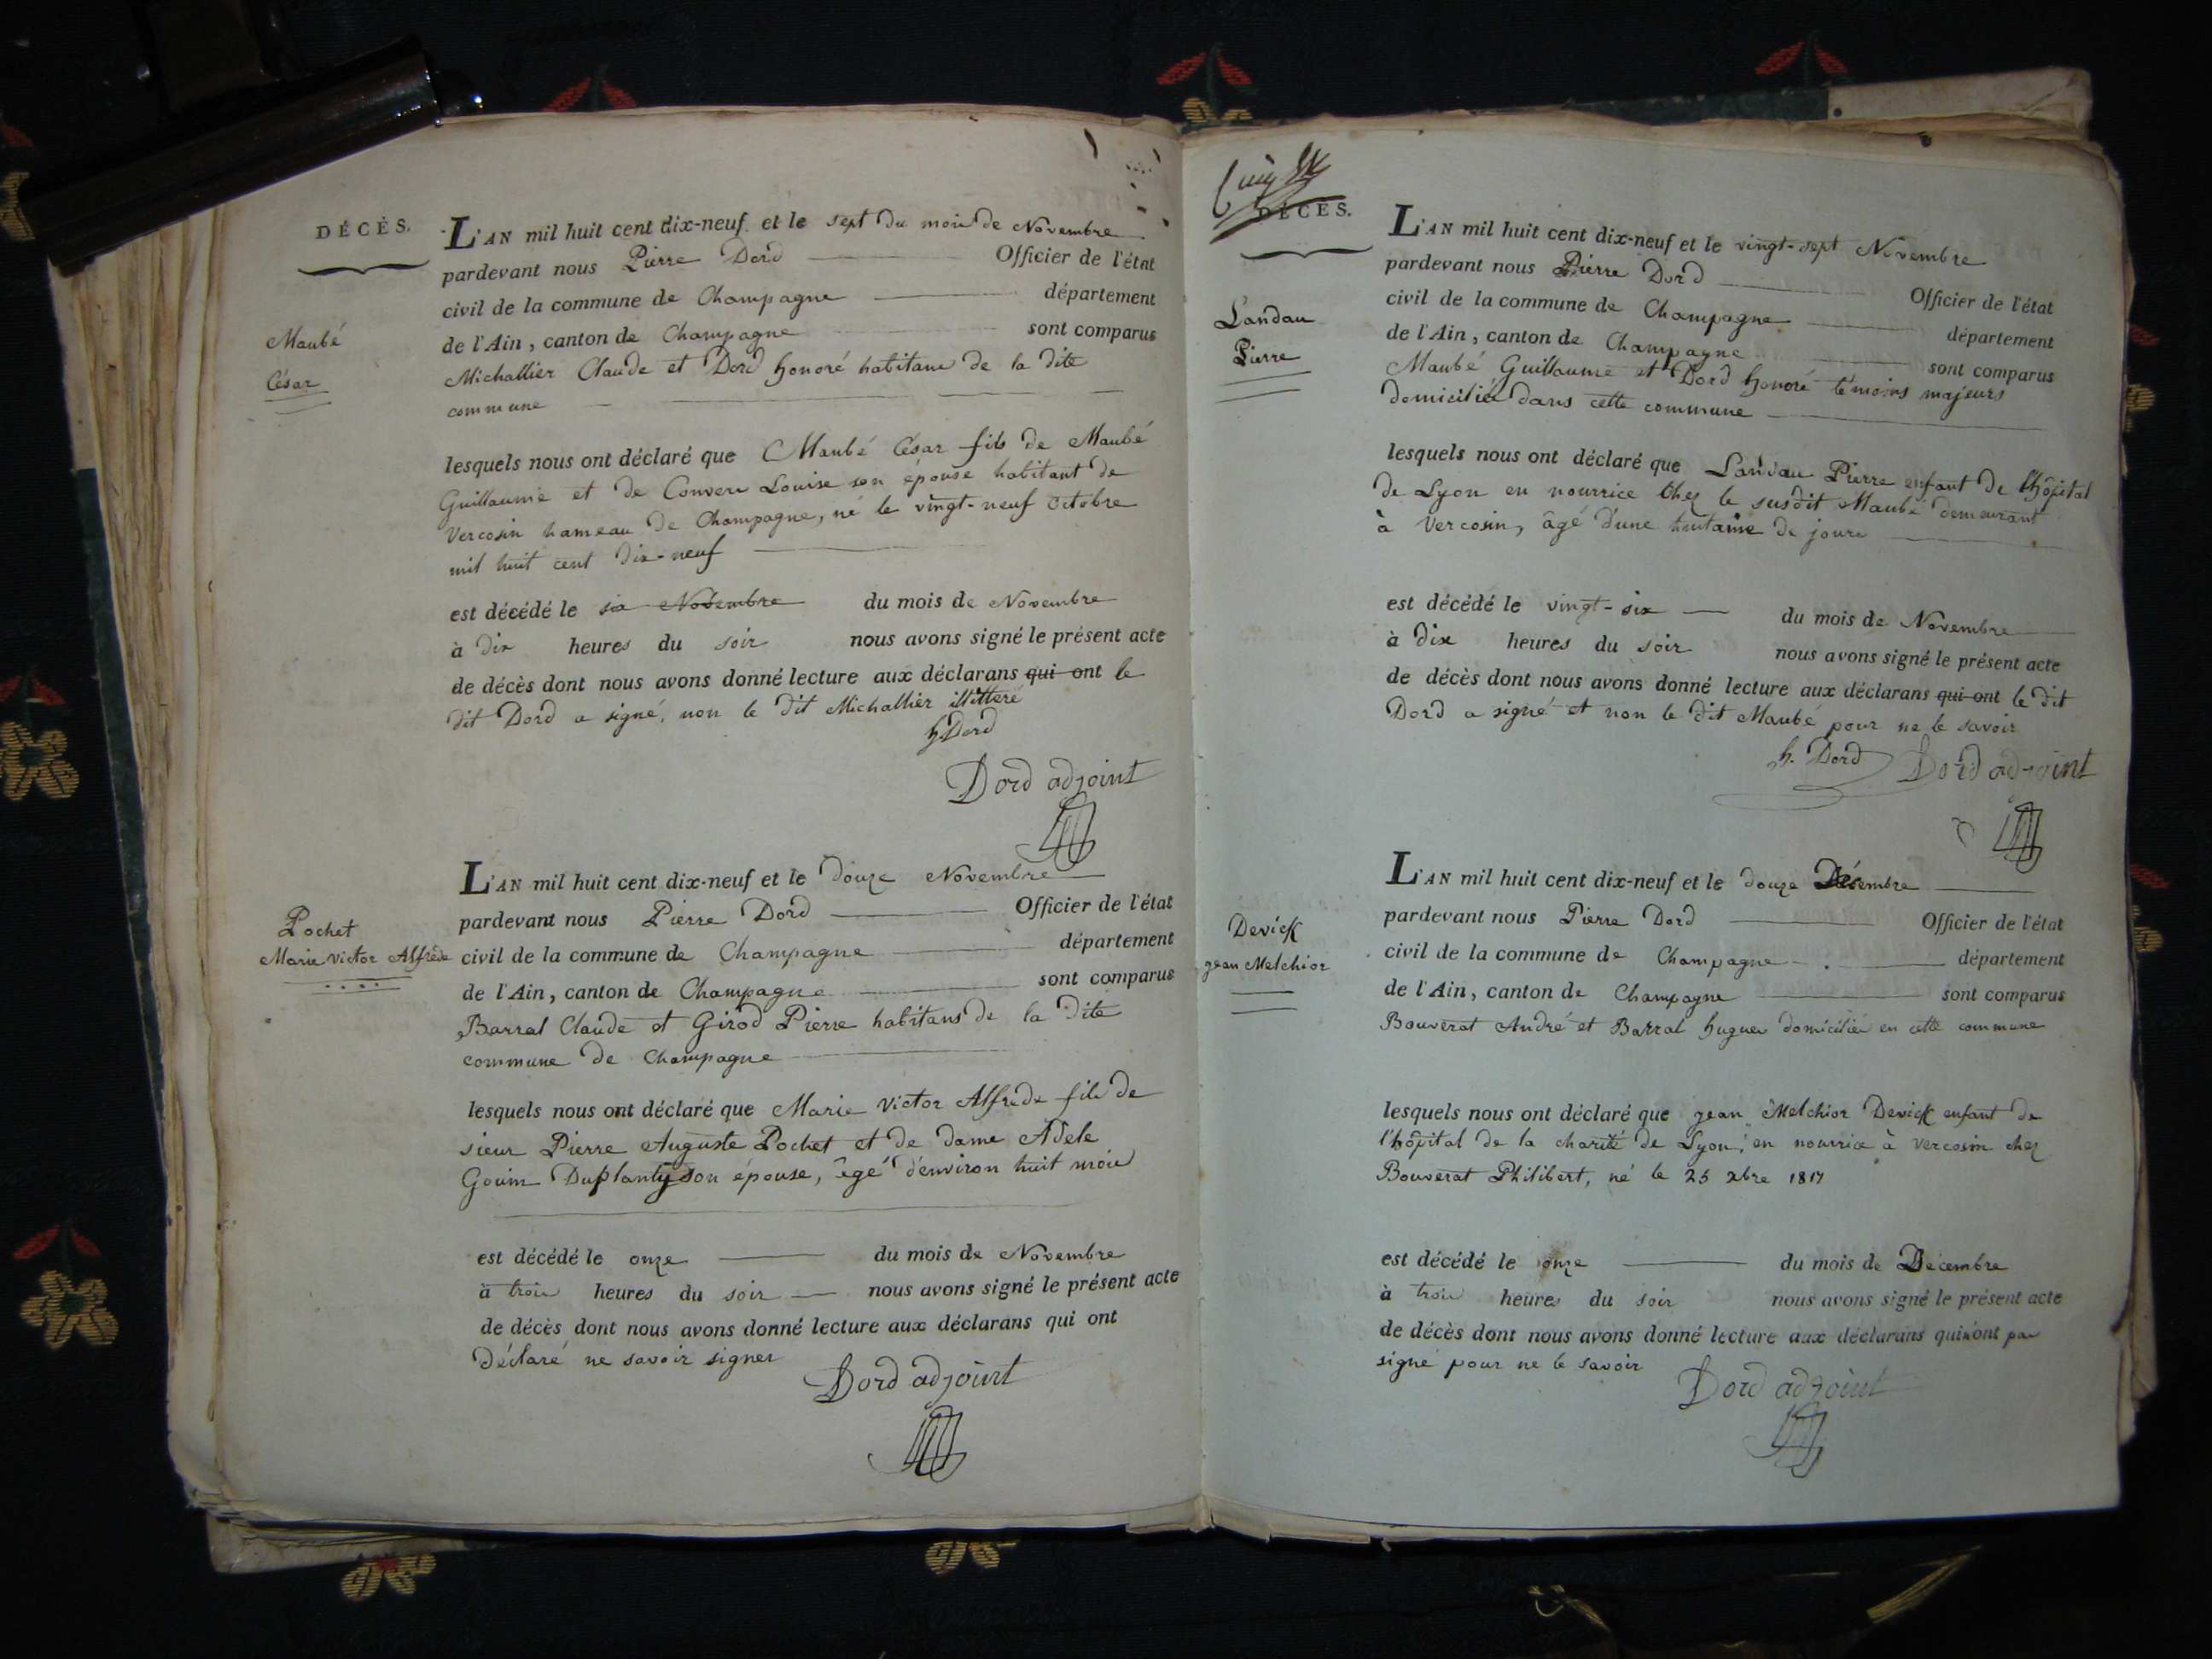 DÉCÈS.
Maubé
César
L'AN mil huit cent dix-neuf et le sept du mois de Novembre
pardevant nous Pierre Dord Officier de l'état
civil de la commune de Champagne département
de l'Ain, canton de Champagne sont comparus
Michallier Claude et Dord honoré habitans de la dite
commune
lesquels nous ont déclaré que Maubé César fils de Maubé
Guillaume et de Convers Louise son épouse habitant de
Vercosin hameau de Champagne, né le vingt-neuf octobre
mil huit cent dix-neuf
est décédé le six Novembre du mois de Novembre
à dix heures du soir nous avons signé le présent acte
de décès dont nous avons donné lecture aux déclarans qui ont le
dit Dord a signé, non le dit Michallier illitteré
h. Dord
Dord adjoint
Pochet
Marie victor Alfrède
L'AN mil huit cent dix-neuf et le douze Novembre
pardevant nous Pierre Dord Officier de l'état
civil de la commune de Champagne département
de l'Ain, canton de Champagne sont comparus
Barral Claude et Girod Pierre habitans de la dite
commune de Champagne
lesquels nous ont déclaré que Marie victor Alfrède fils de
sieur Pierre Auguste Pochet et de dame Adele
Gouin Duplanty son épouse, âgé d'environ huit mois
est décédé le onze du mois de Novembre
à trois heures du soir nous avons signé le présent acte
de décès dont nous avons donné lecture aux déclarans qui ont
déclaré ne savoir signer
Dord adjoint
DÉCÈS.
Landau
Pierre
L'AN mil huit cent dix-neuf et le vingt-sept Novembre
pardevant nous Pierre Dord Officier de l'état
civil de la commune de Champagne département
de l'Ain, canton de Champagne sont comparus
Maubé Guillaume et Dord honoré témoins majeurs
domiciliés dans cette commune
lesquels nous ont déclaré que Landau Pierre enfant de l'hôpital
de Lyon en nourrice chez le susdit Maubé demeurant
à Vercosin, âgé d'une huitaine de jours
est décédé le vingt-six du mois de Novembre
à dix heures du soir nous avons signé le présent acte
de décès dont nous avons donné lecture aux déclarans qui ont le dit
Dord a signé et non le dit Maubé pour ne le savoir
h. Dord Dord adjoint
Devick
jean Melchior
L'AN mil huit cent dix-neuf et le douze Décembre
pardevant nous Pierre Dord Officier de l'état
civil de la commune de Champagne département
de l'Ain, canton de Champagne sont comparus
Bouverat André et Barral hugues domiciliés en cette commune
lesquels nous ont déclaré que jean Melchior Devick enfant de
l'hôpital de la charité de Lyon, en nourrice à Vercosin chez
Bouverat Philibert, né le 25 xbre 1817
est décédé le onze du mois de Décembre
à trois heures du soir nous avons signé le présent acte
de décès dont nous avons donné lecture aux déclarans qui n'ont pas
signé pour ne le savoir
Dord adjoint